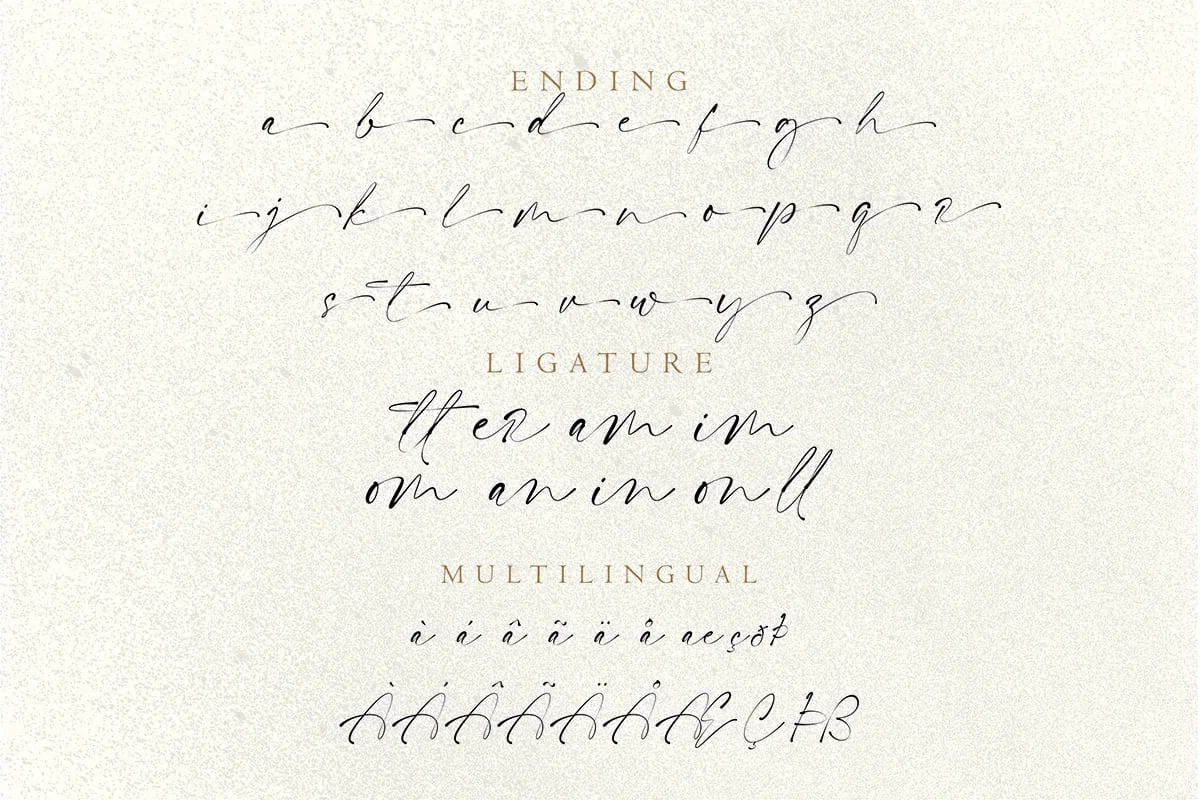 ENDING
a b c d e f g h
i j k l m n o p q r
s t u v w y z
LIGATURE
tt er am im
om an in on ll
MULTILINGUAL
à á â ã ä å æ ç ð þ
À Á Â Ã Ä Å Æ Ç Þ ß